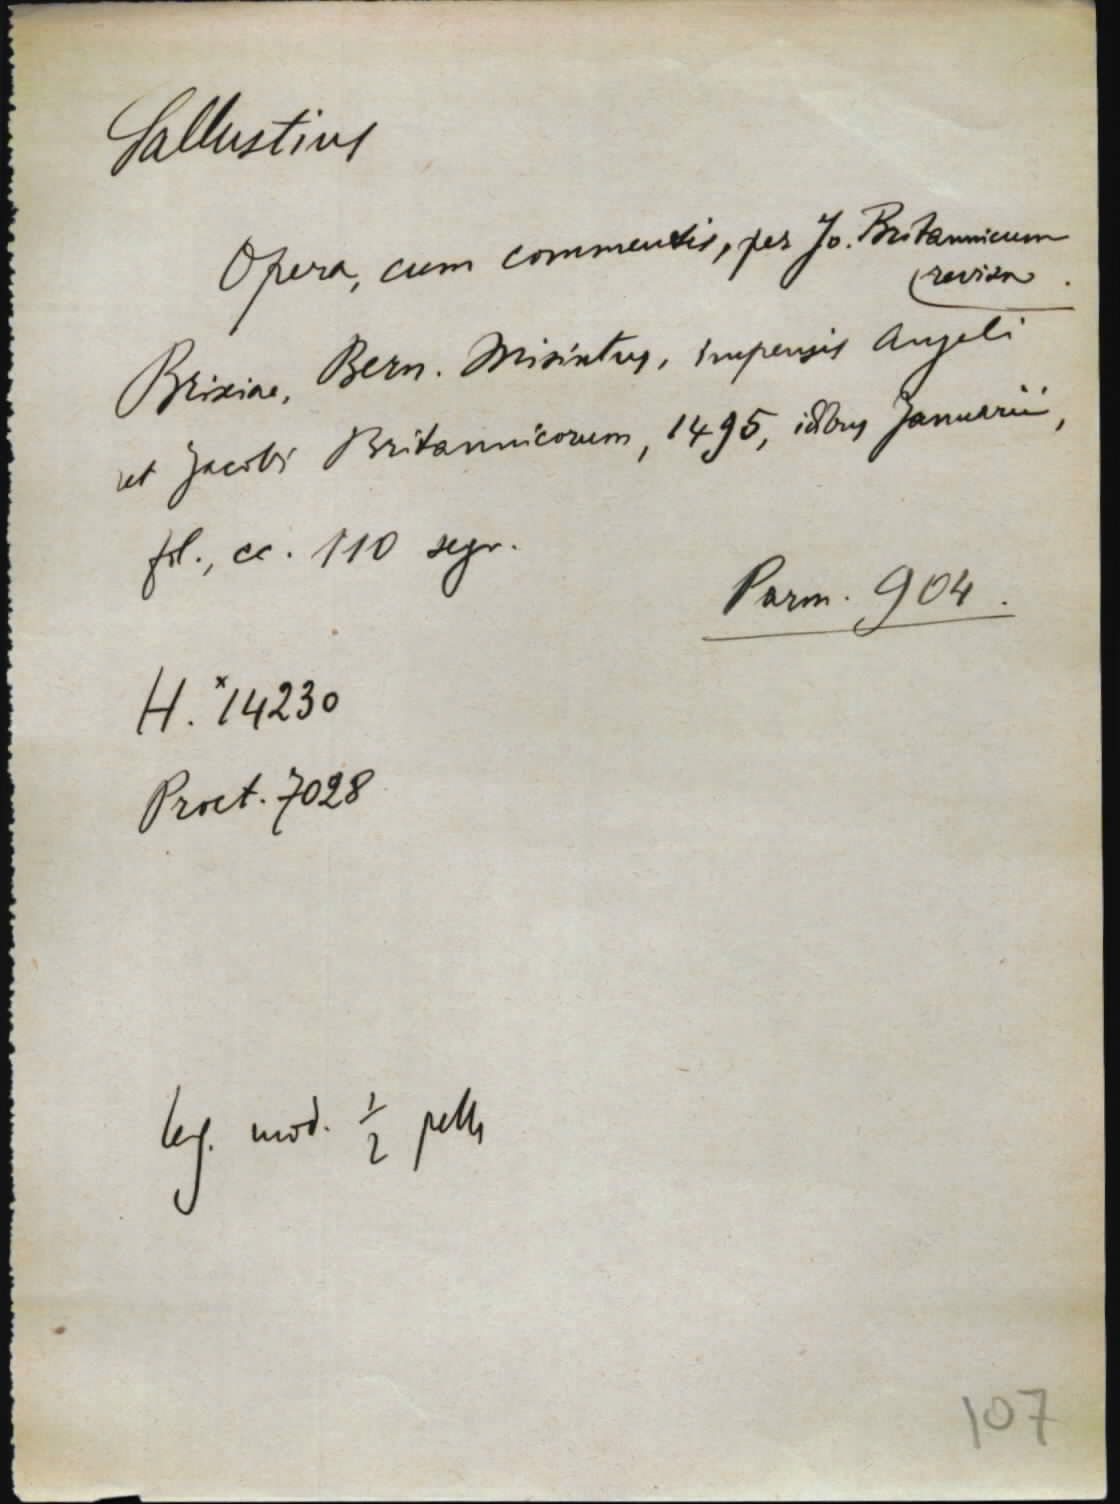 Sallustius
Opera, cum commentis, per Jo. Britannicum
revisa.
Brixiae, Bern. Misintus, impensis Angeli
et Jacobi Britannicorum, 1495, idibus Januarii,
fol., cc. 110 segn.
Parm. 904.
H. *14230
Proct. 7028
leg. mod. 1/2 pelle
107